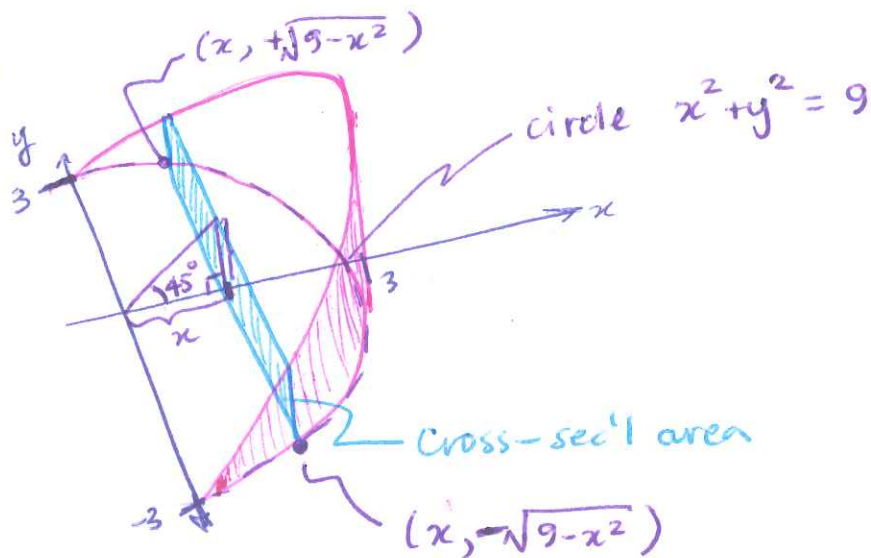 (x, +√(9-x²))
circle x² + y² = 9
y
3
x
45°
3
x
cross-sec'l area
-3
(x, -√(9-x²))